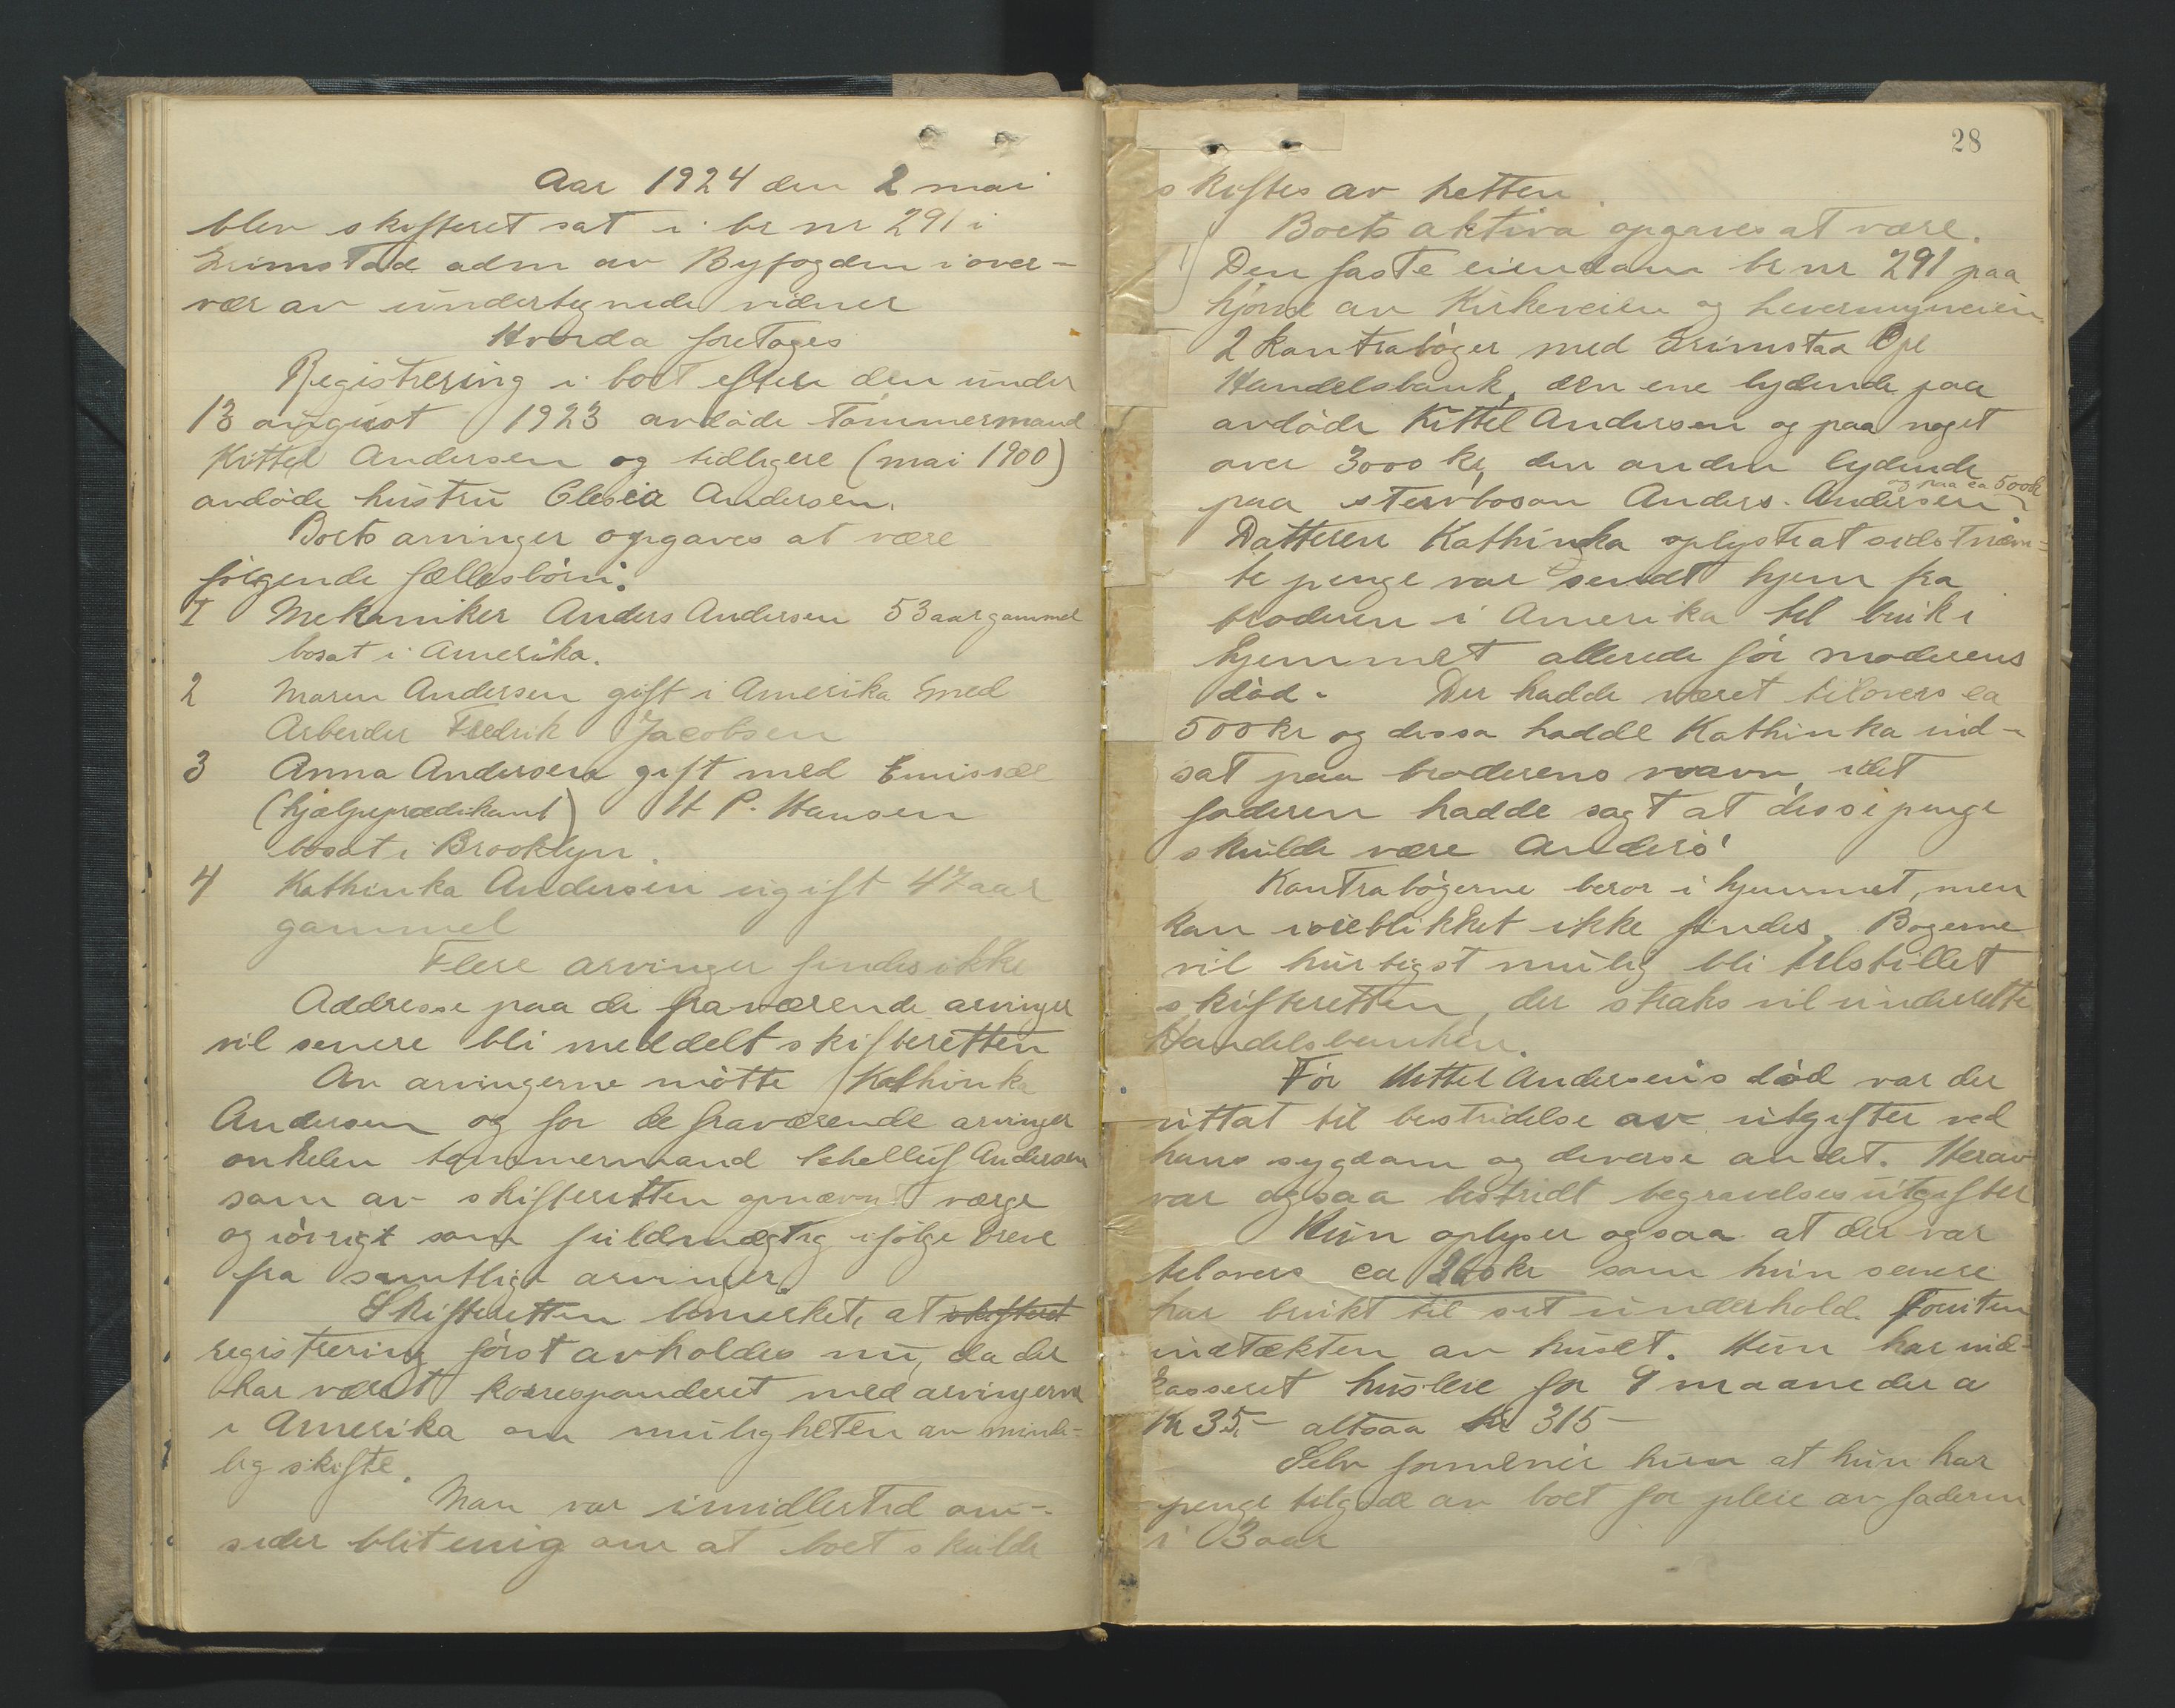 Aar 1924 den 2 mai
blev skifteret sat i br nr 291 i
Grimstad adm av Byfogden i over-
vær av undertegnede vidner
Hvorda foretoges
Registrering i boet efter den under
13 august 1923 avdøde tømmermand
Kittel Andersen og tidligere (mai 1900)
avdøde hustru Olesia Andersen.
Boets arvinger opgaves at være
følgende fællesbørn:
1 Mekaniker Anders Andersen 53 aar gammel
bosat i Amerika.
2 Maren Andersen gift i Amerika med
Arbeider Fredrik Jacobsen
3 Anna Andersen gift med Emissær
(hjælpeprædikant) H P. Hansen
bosat i Brooklyn.
4 Kathinka Andersen ugift 47 aar
gammel
Flere arvinger findes ikke
Addresse paa de fraværende arvinger
vil senere bli meddelt skifteretten
Av arvingerne møtte Kathinka
Andersen og for de fraværende arvinger
onkelen tømmermand Andersen
som av skifteretten opnævnt værge
og iøvrigt som fuldmægtig ifølge breve
fra samtlige arvinger
Skifteretten bemerket, at skifteret
registrering først avholdes nu, da der
har været korresponderet med arvingerne
i Amerika om muligheten av minde-
lig skifte.
Man var imidlertid om-
sider blit enig om at boet skulde
28
skiftes av retten.
Boets aktiva opgaves at være.
1) Den faste eiendom br nr 291 paa
hjørne av Kirkeveien og
2 kontrabøger med Grimstad Opl
Handelsbank, den ene lydende paa
avdøde Kittel Andersen og paa noget
over 3000 kr, den anden lydende
og paa ca 500 kr
paa stervboson Anders Andersen
Datteren Kathinka oplyste at sidstnævn-
te penge var sendt hjem fra
broderen i Amerika til bruk i
hjemmet allerede før moderens
død. Der hadde været tilovers ca
500 kr og disse hadde Kathinka ind-
sat paa broderens navn, idet
faderen hadde sagt at disse penge
skulde være Anders'
Kontrabøgerne beror i hjemmet, men
kan i øieblikket ikke findes. Bøgerne
vil hurtigst mulig bli tilstillet
skifteretten, der straks vil underrette
Handelsbanken.
Før Kittel Andersens død var der
uttat til bestridelse av utgifter ved
hans sygdom og diverse andet. Herav
var ogsaa bestridt begravelsesutgifter
Hun oplyser ogsaa at der var
tilovers ca 200 kr som hun senere
har brukt til sit underhold. Foruten
indtækten av huset. Hun har ind-
kasseret husleie for 9 maaneder a
Kr 35,- altsaa kr 315-
Selv formener hun at hun har
penge tilgode av boet for pleie av faderen
i 3 aar